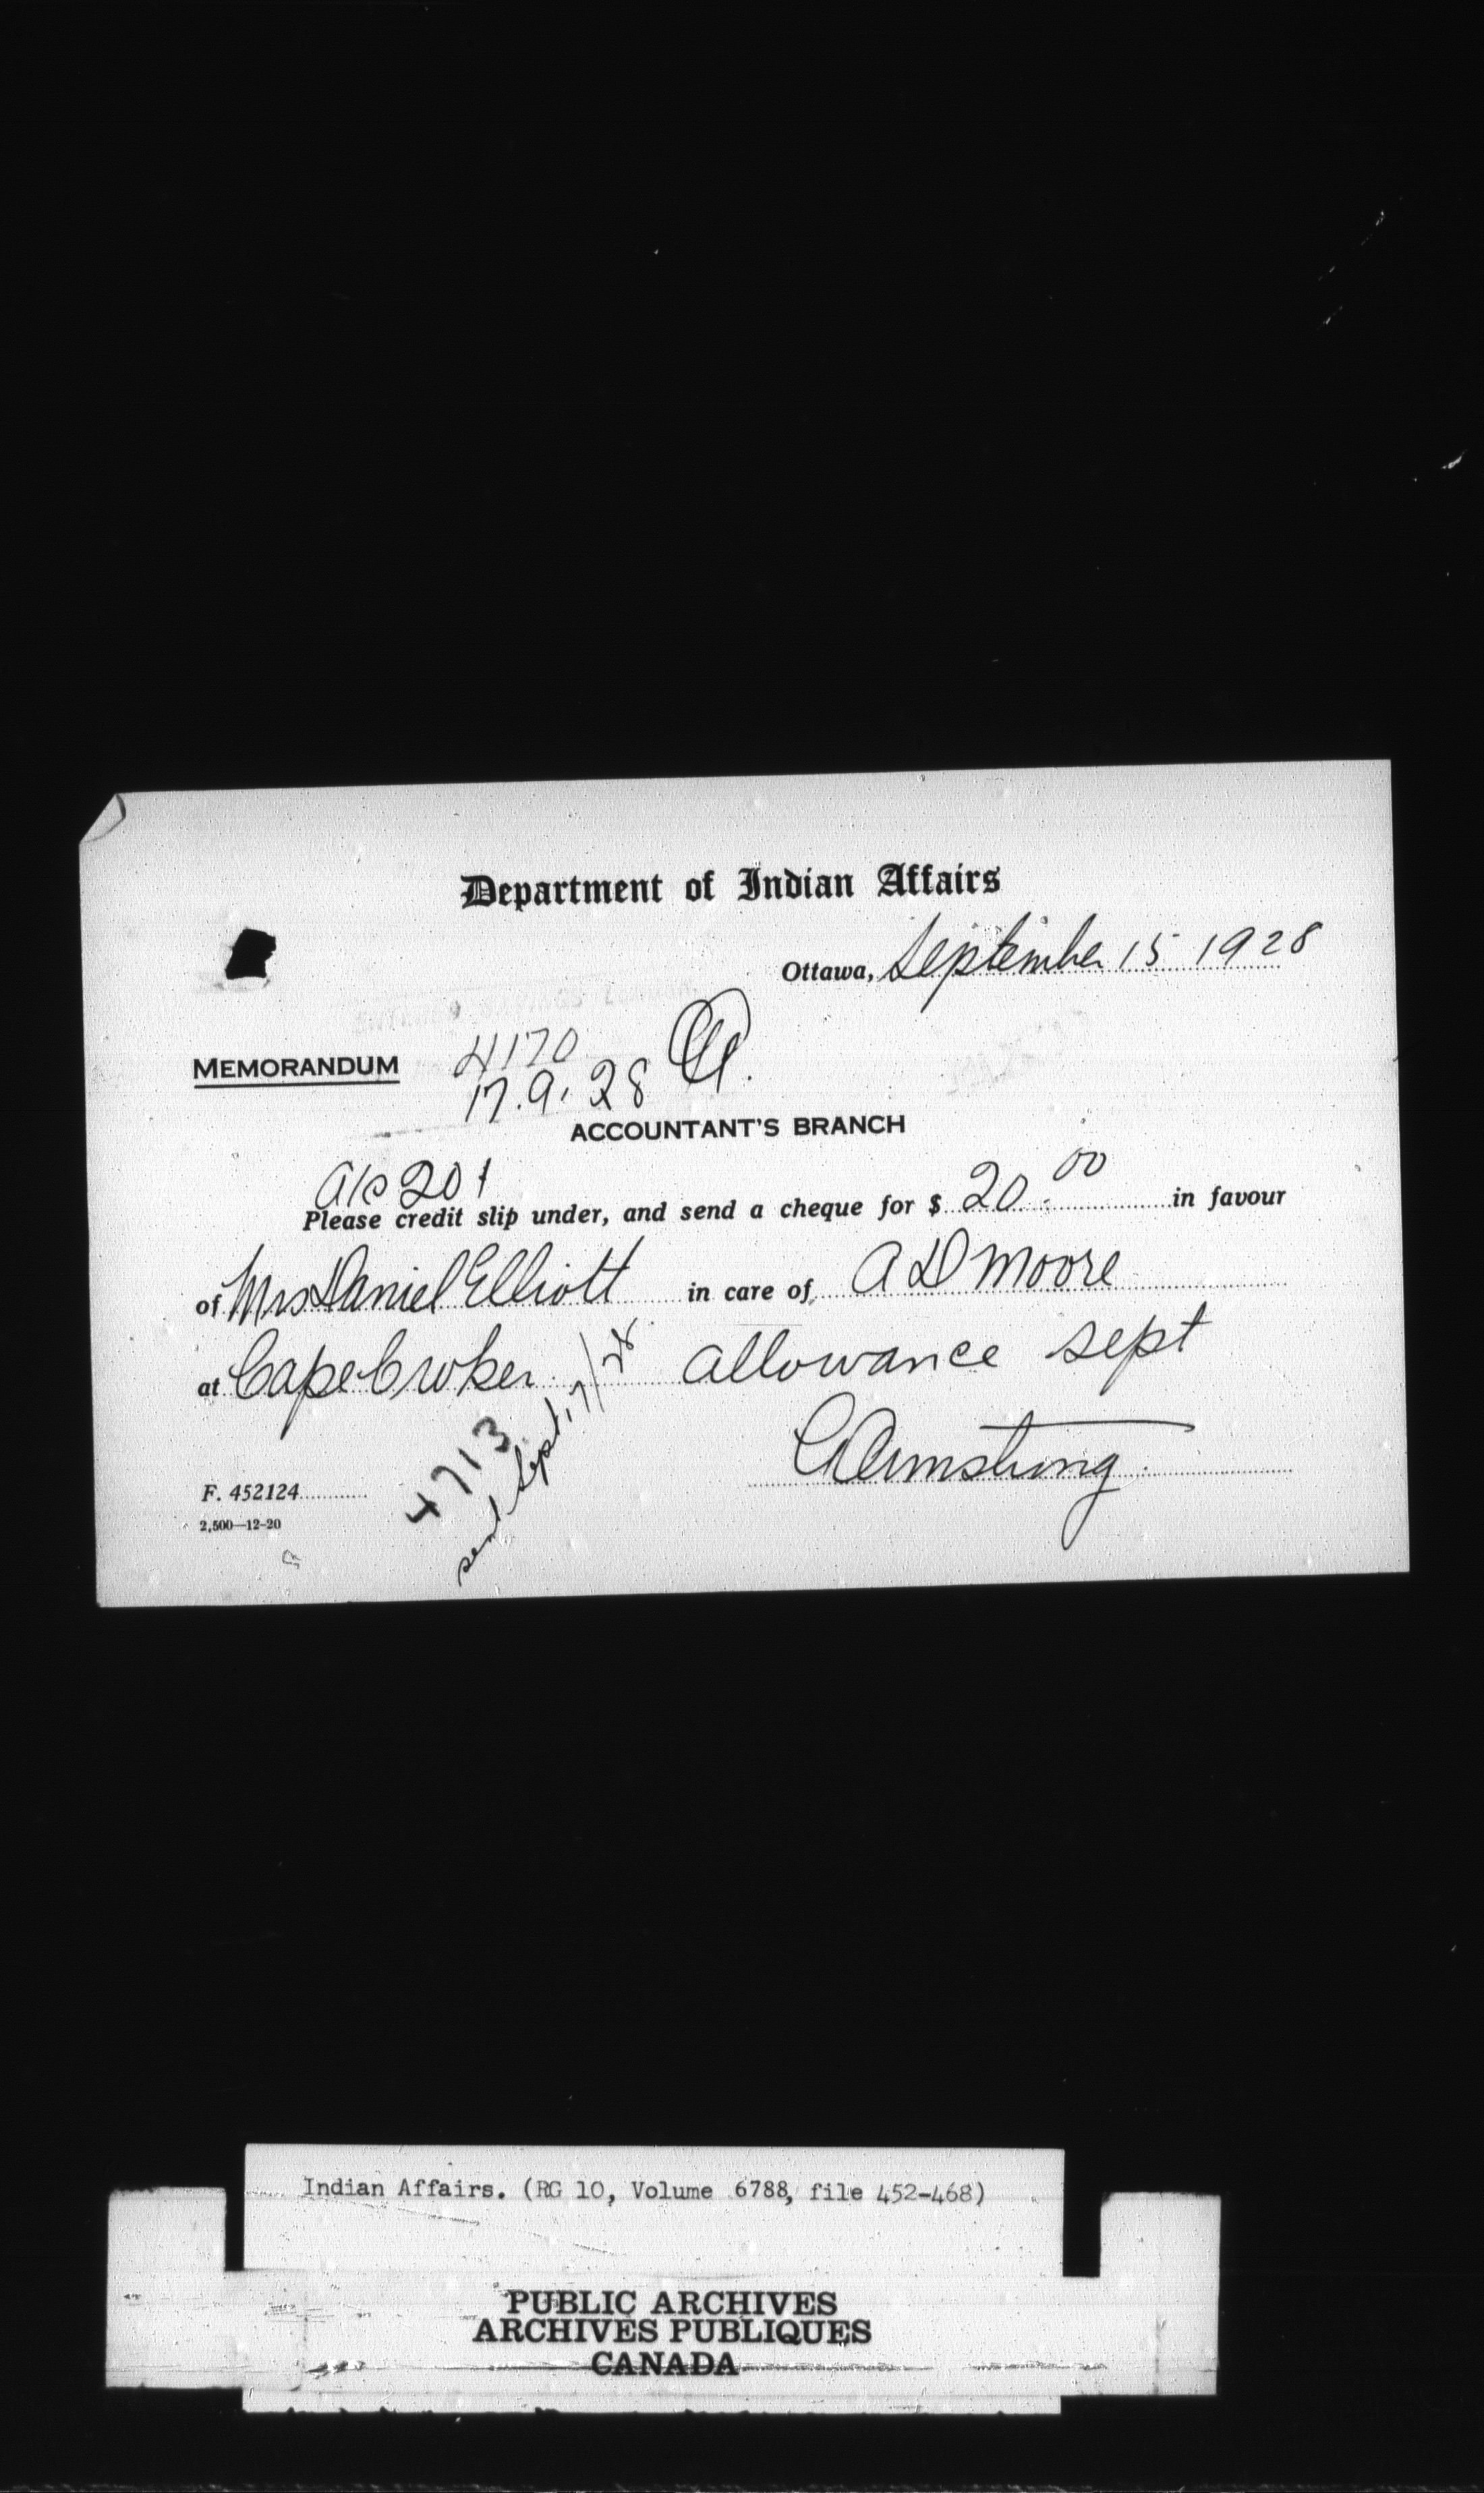 Department of Indian Affairs
Ottawa, September 15 1928
MEMORANDUM
4170
17.9.28
ACCOUNTANT'S BRANCH
a/c 201
Please credit slip under, and send a cheque for $ 20.00 in favour
of Mrs Daniel Elliott in care of A D Moore
at Cape Croker allowance sept
4713
sent Sept. 17/28
C Armstrong
F. 452124
2,500—12-20
Indian Affairs. (RG 10, Volume 6788, file 452-468)
PUBLIC ARCHIVES
ARCHIVES PUBLIQUES
CANADA